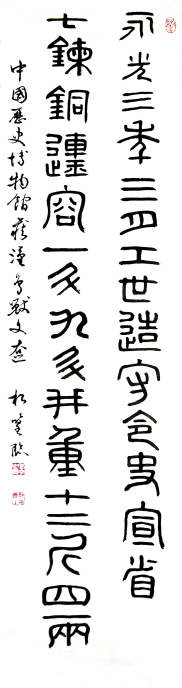 永光三年四月工世造守令史宣省
七鍊銅容一斗九升并重十三斤四兩
中國歷史博物館藏漢鳥獸文奩 松臨